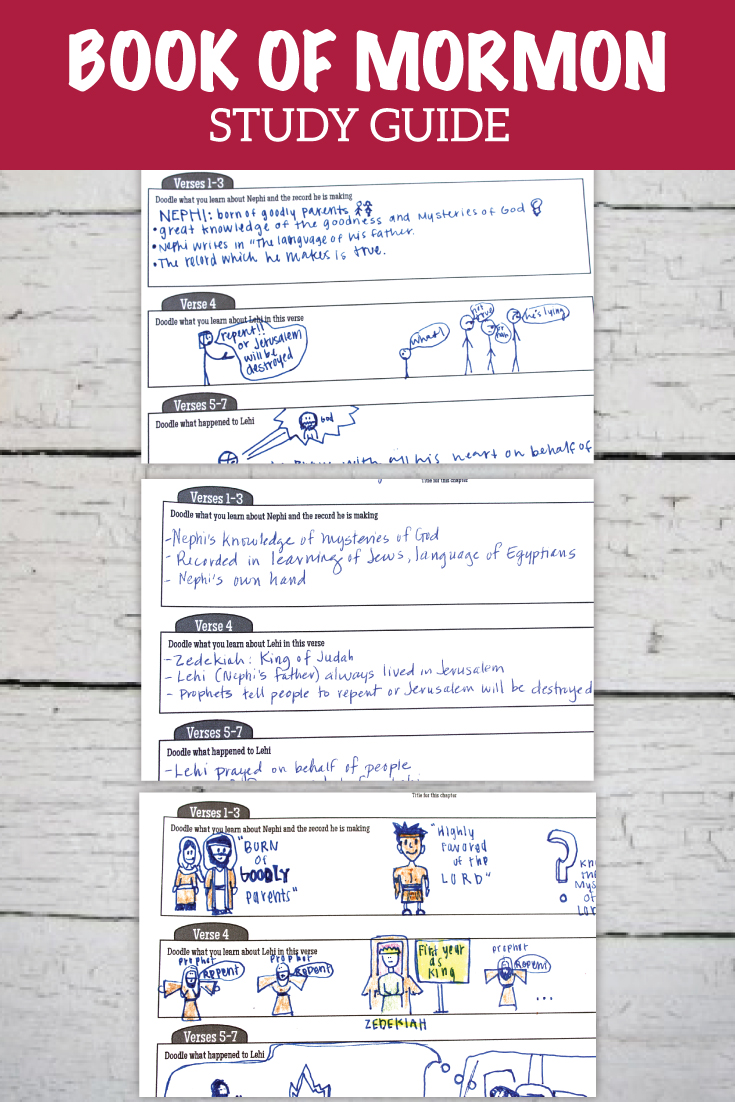 BOOK OF MORMON
STUDY GUIDE
Verses 1-3
Doodle what you learn about Nephi and the record he is making
NEPHI: born of goodly parents
• great knowledge of the goodness and Mysteries of God
• Nephi writes in "The language of his father.
• The record which he makes is true.
Verse 4
Doodle what you learn about Lehi in this verse
repent!!
or Jerusalem
will be
destroyed
what!
not
true
he's lying
Verses 5-7
Doodle what happened to Lehi
God
with all his heart on behalf of
Title for this chapter
Verses 1-3
Doodle what you learn about Nephi and the record he is making
- Nephi's knowledge of mysteries of God
- Recorded in learning of Jews, language of Egyptians
- Nephi's own hand
Verse 4
Doodle what you learn about Lehi in this verse
- Zedekiah: King of Judah
- Lehi (Nephi's father) always lived in Jerusalem
- Prophets tell people to repent or Jerusalem will be destroyed
Verses 5-7
Doodle what happened to Lehi
- Lehi prayed on behalf of people
Title for this chapter
Verses 1-3
Doodle what you learn about Nephi and the record he is making
"BORN
OF
GOODLY
Parents"
"Highly
Favored
of the
LORD"
?
Verse 4
Doodle what you learn about Lehi in this verse
prophet
Repent
prophet
Repent
First year
as
King
ZEDEKIAH
prophet
Repent
...
Verses 5-7
Doodle what happened to Lehi